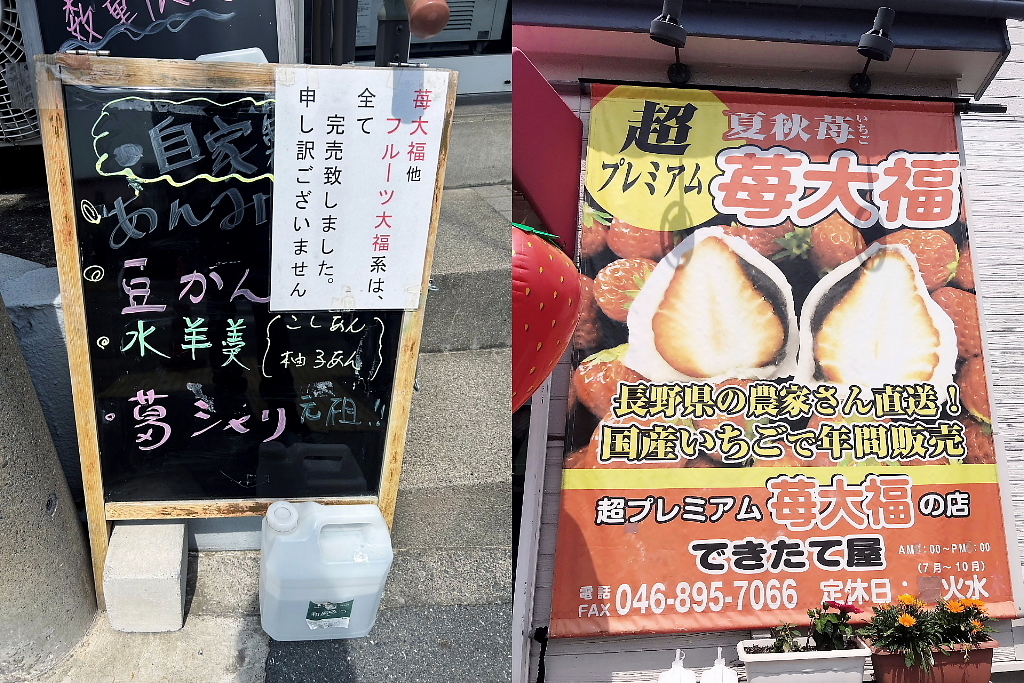 数量限
自家製
あんみ
豆かん
水羊羹
こしあん
柚子あん
葛シャリ 元祖!!
苺大福他
フルーツ大福系は、
全て
完売致しました。
申し訳ございません
超
プレミアム
夏秋苺
いちご
苺大福
長野県の農家さん直送!
国産いちごで年間販売
超プレミアム苺大福の店
できたて屋
(7月~10月)
電話
FAX 046-895-7066 定休日: 火水